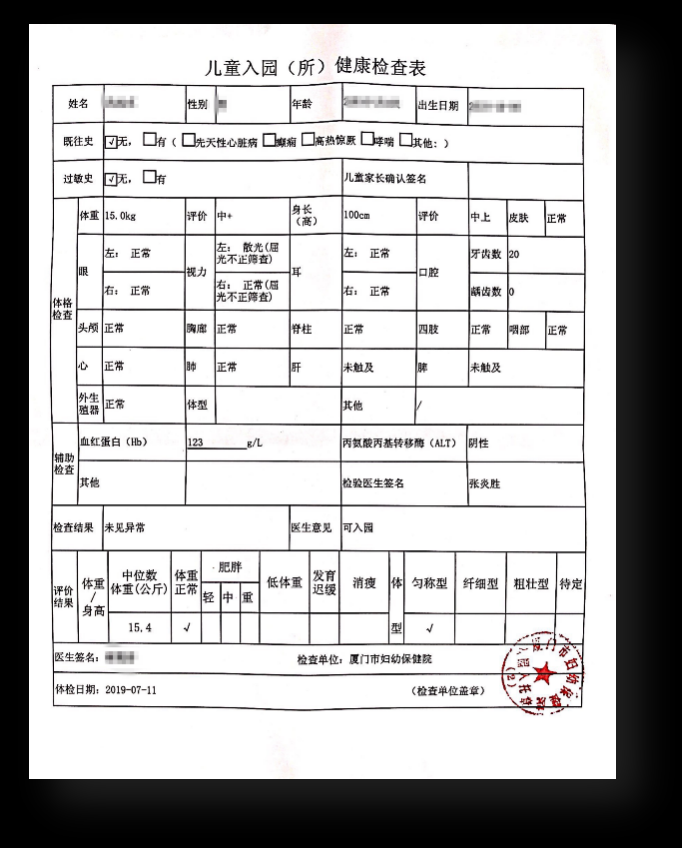 儿童入园（所）健康检查表
姓名 性别 年龄 出生日期
既往史 ☑无，□有（□先天性心脏病□癫痫□高热惊厥□哮喘□其他：）
过敏史 ☑无，□有 儿童家长确认签名
体格检查
体重 15.0kg 评价 中+ 身长（高） 100cm 评价 中上 皮肤 正常
眼 左： 正常 视力 左： 散光(屈光不正筛查) 耳 左： 正常 口腔 牙齿数 20
右： 正常 右： 正常(屈光不正筛查) 右： 正常 龋齿数 0
头颅 正常 胸廓 正常 脊柱 正常 四肢 正常 咽部 正常
心 正常 肺 正常 肝 未触及 脾 未触及
外生殖器 正常 体型 其他 /
辅助检查
血红蛋白（Hb） 123 g/L 丙氨酸丙基转移酶（ALT） 阴性
其他 检验医生签名 张炎胜
检查结果 未见异常 医生意见 可入园
评价结果 体重/身高 中位数体重(公斤) 体重正常 肥胖 低体重 发育迟缓 消瘦 体型 匀称型 纤细型 粗壮型 待定
轻 中 重
15.4 √ √
医生签名： 检查单位：厦门市妇幼保健院
体检日期：2019-07-11 （检查单位盖章）